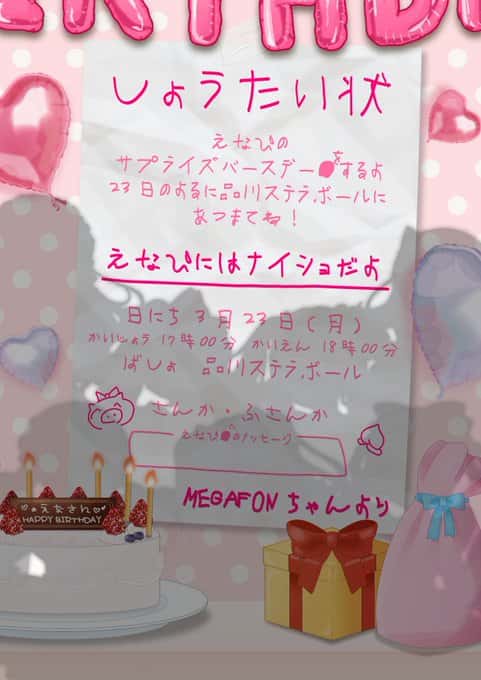 しょうたい状
えなぴの
サプライズバースデー をするよ
23日のよるに品川ステラボールに
あつまてね！
えなぴにはナイショだよ
日にち 3月23日(月)
かいじょう 17時00分 かいえん 18時00分
ばしょ 品川ステラボール
さんか・ふさんか
えなぴ のメッセージ
MEGAFONちゃんより
えなさん
HAPPY BIRTHDAY